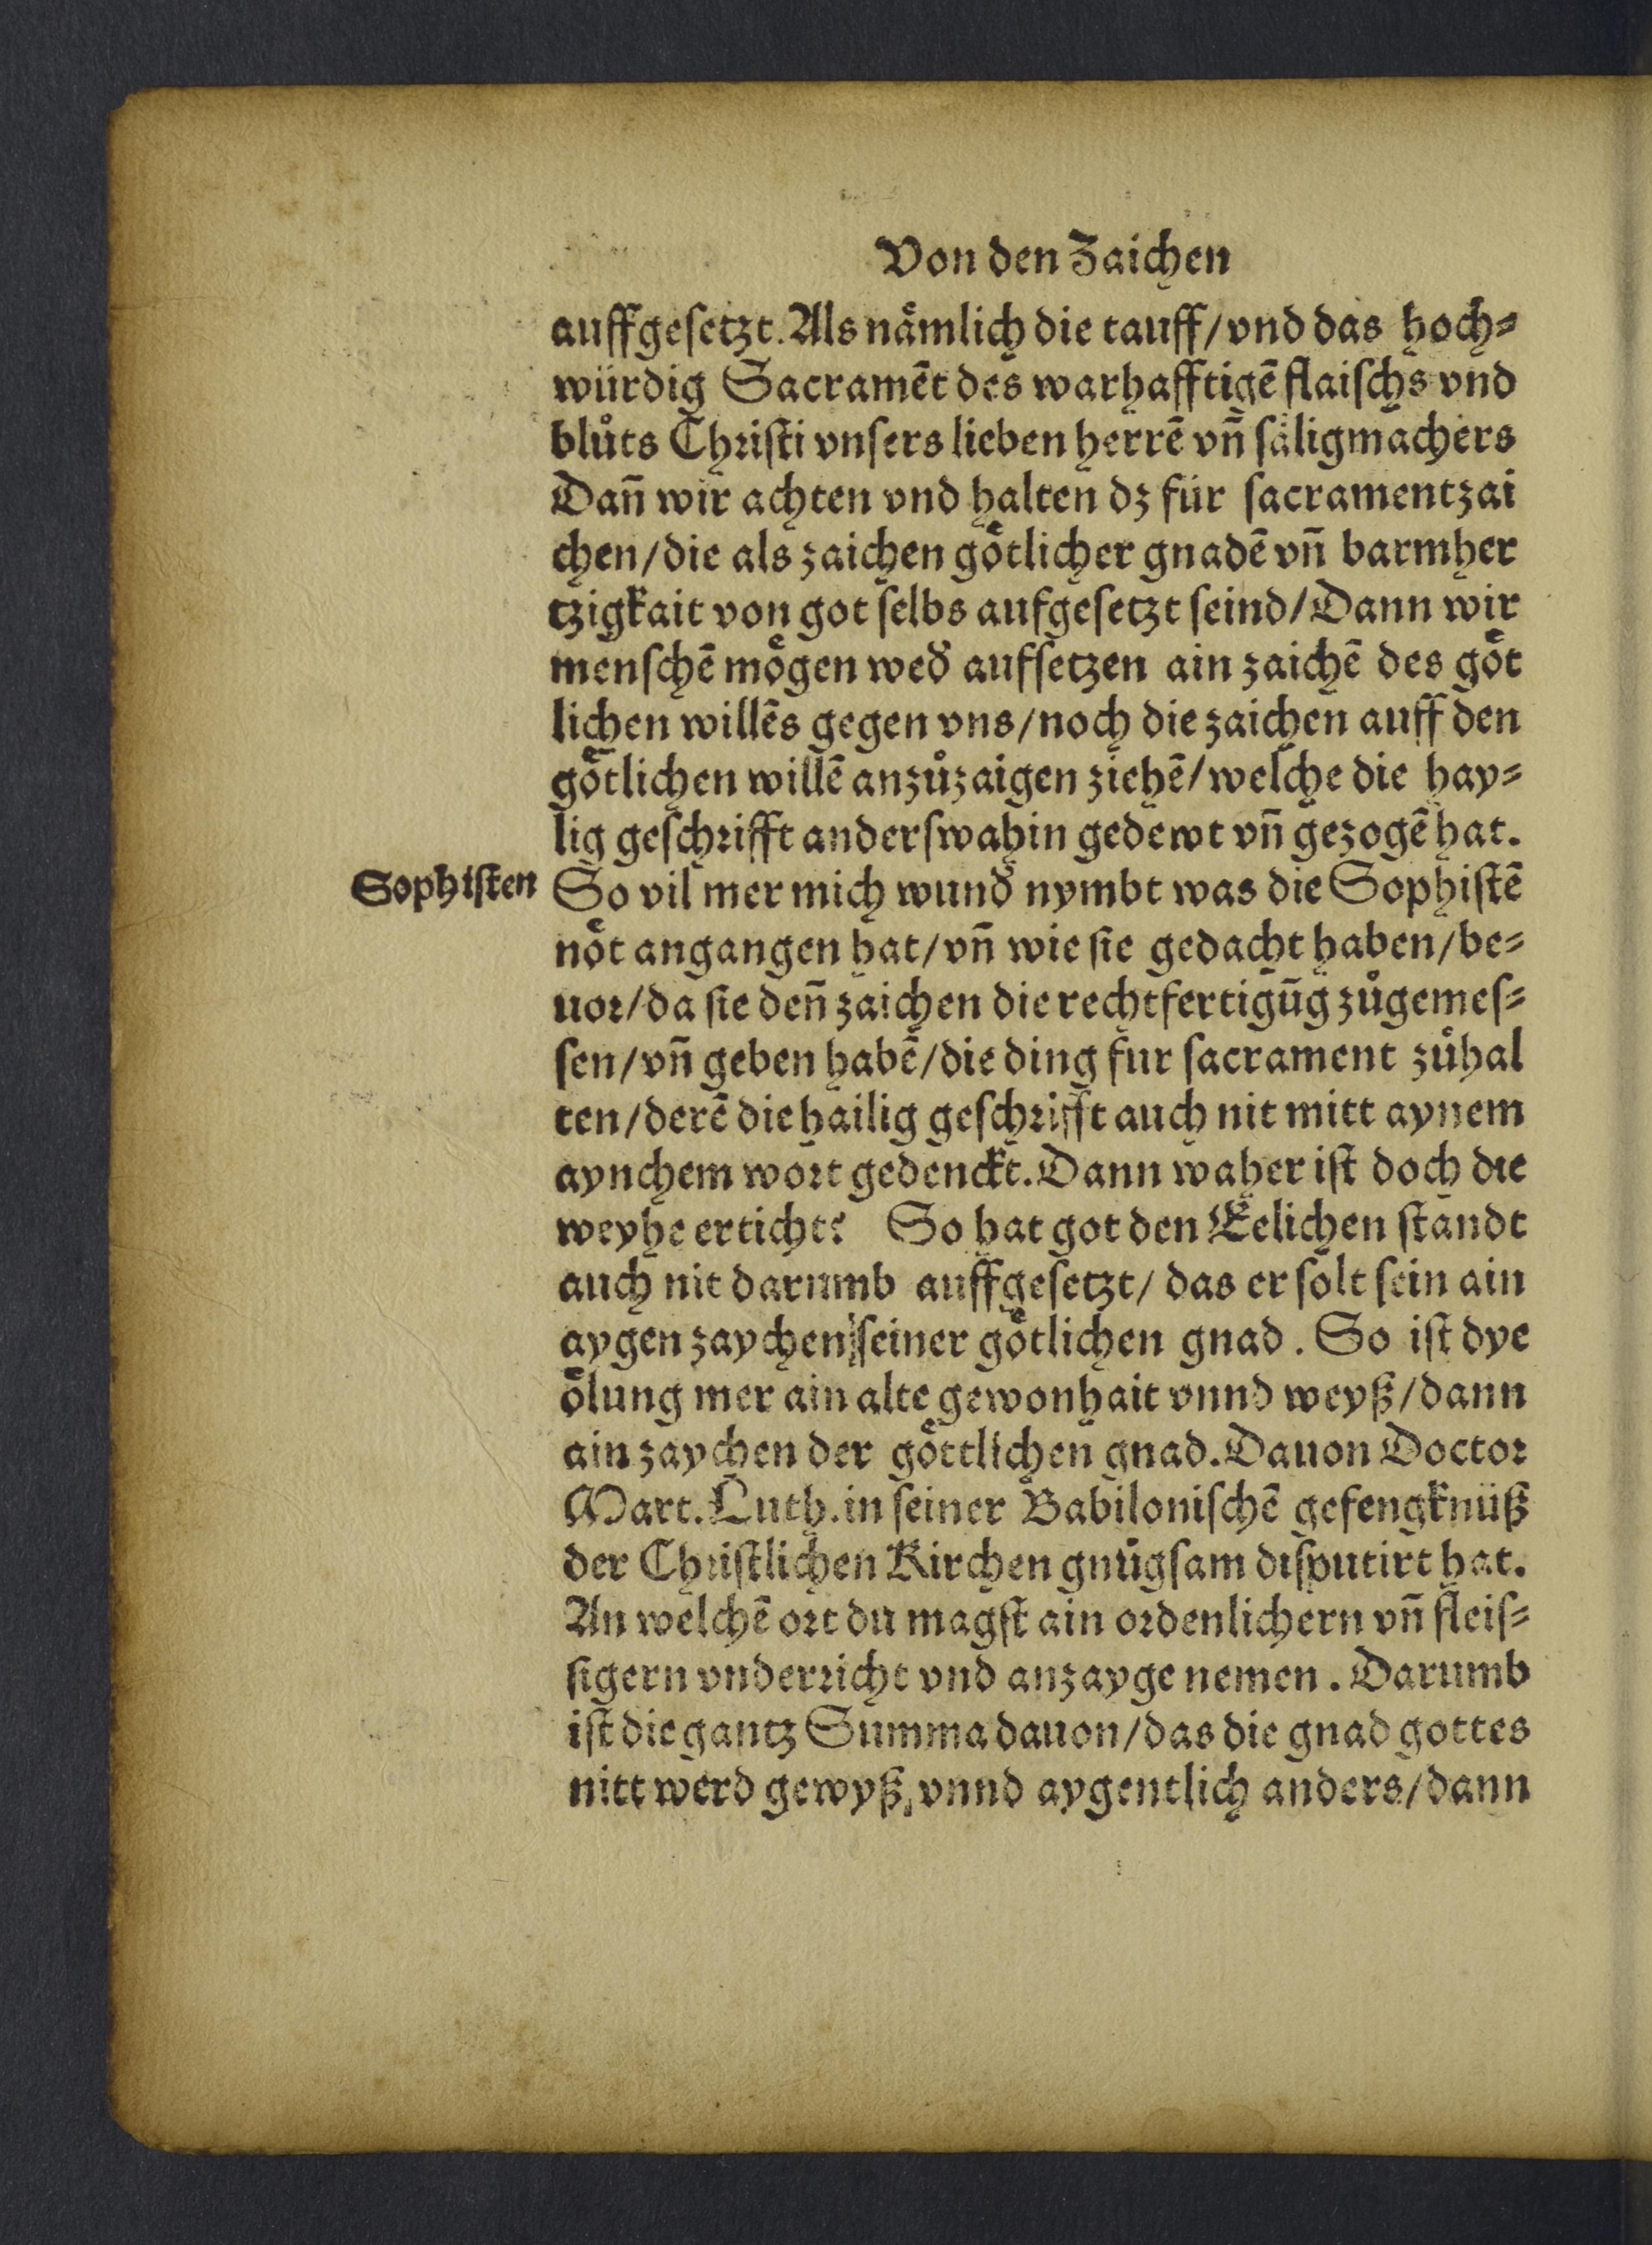 Von den Zaichen
auffgeſetzt. Als naͤmlich die tauff/vnd das hoch⸗
würdig Sacramēt des warhafftigē flaiſchs vnd
bluͦts Chꝛiſti vnſers lieben herrē vn̄ ſaͤligmachers
Dan̄ wir achten vnd halten dz für ſacramentzai
chen/die als zaichen goͤtlicher gnadē vn̄ barmher
tzigkait von got ſelbs aufgeſetzt ſeind/Dann wir
menſchē moͤgen wed̕ aufſetzen ain zaichē des goͤt
lichen willēs gegen vns/noch die zaichen auff den
goͤtlichen willē anzuͦzaigen ziehē/welche die hay⸗
lig geſchꝛifft anderſwahin gedewt vn̄ gezogē hat.
Sophiſten
So vil mer mich wund̕ nymbt was die Sophiſtē
noͤt angangen hat/vn̄ wie ſie gedacht haben/be⸗
uoꝛ/da ſie den̄ zaichen die rechtfertigūg zuͦgemeſ⸗
ſen/vn̄ geben habē/die ding fur ſacrament zuͦhal
ten/derē die hailig geſchꝛifft auch nit mitt aynem
aynchem woꝛt gedenckt. Dann waher iſt doch die
weyhe erticht? So hat got den Eelichen ſtandt
auch nit darumb auffgeſetzt/ das er ſolt ſein ain
aygen zaychen ſeiner goͤtlichen gnad. So iſt dye
oͤlung mer ain alte gewonhait vnnd weyß/dann
ain zaychen der goͤttlichen gnad. Dauon Doctoꝛ
Mart. Luth. in ſeiner Babiloniſchē gefengknüß
der Chꝛiſtlichen Kirchen gnuͦgſam diſputirt hat.
An welchē oꝛt du magſt ain oꝛdenlichern vn̄ fleiſ⸗
ſigern vnderꝛicht vnd anzayge nemen. Darumb
iſt die gantz Summa dauon/das die gnad gottes
nitt werd gewyß, vnnd aygentlich anders/dann